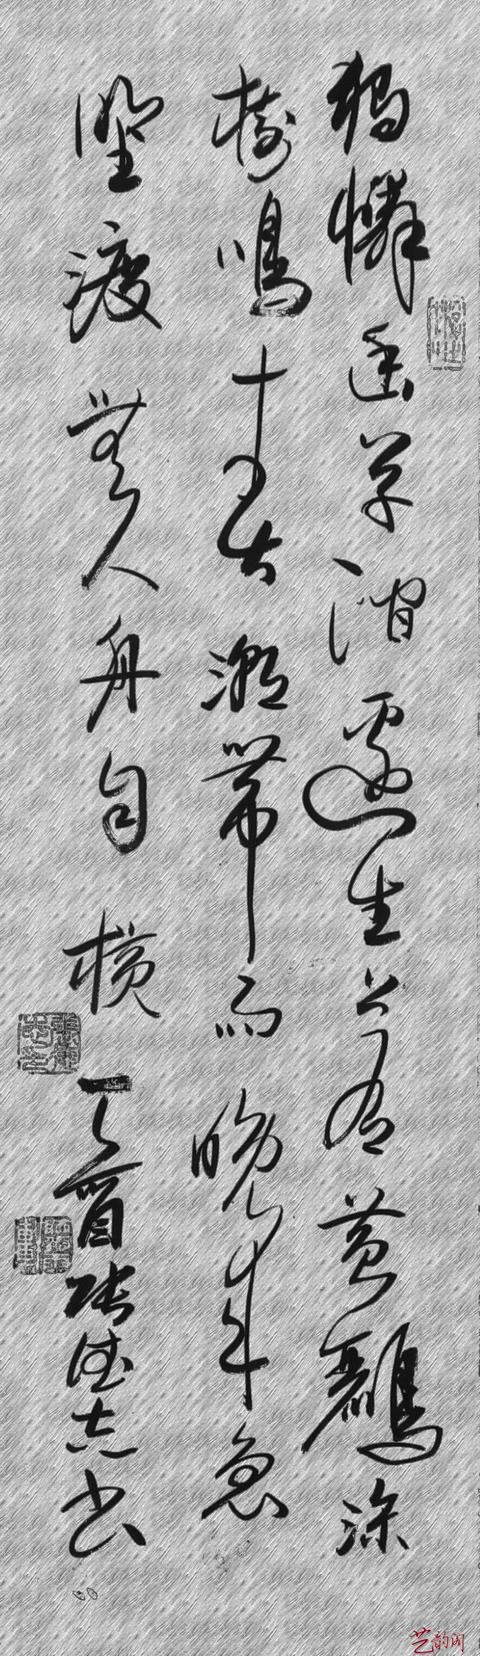 獨憐幽草澗邊生上有黃鸝深
樹鳴春潮帶雨晚來急
野渡無人舟自橫 丁酉張德志書
艺韵阁